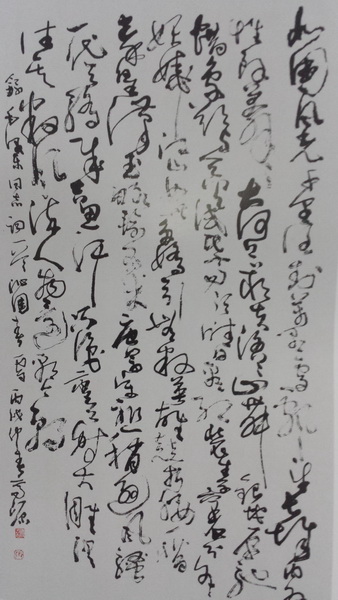 北国风光千里冰封万里雪飘望长城内外
惟余莽莽大河上下顿失滔滔山舞银蛇原驰
蜡象欲与天公试比高须晴日看红装素裹分外
妖娆江山如此多娇引无数英雄竞折腰惜
秦皇汉武略输文采唐宗宋祖稍逊风骚
一代天骄成吉思汗只识弯弓射大雕俱
往矣数风流人物还看今朝
录毛泽东同志词一首沁园春雪丙戌仲春